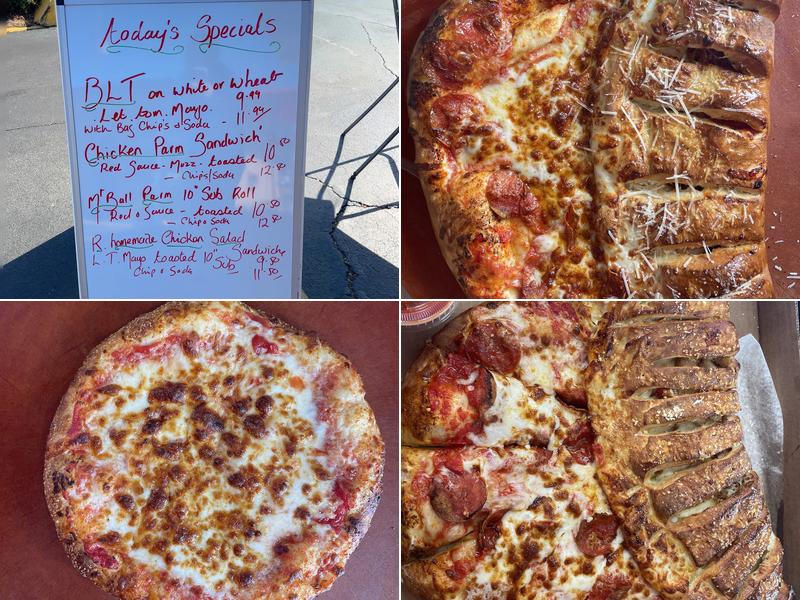 today's Specials
BLT on white or wheat
9.99
Let. tom. Mayo.
with Bag Chip's & Soda - 11.99
Chicken Parm Sandwich
Red Sauce - Mozz - toasted 10.80
- Chips/Soda 12.80
Mt Ball Parm 10" Sub Roll
Red Sauce - toasted 10.50
- Chip & Soda 12.80
R. homemade Chicken Salad
L.T. Mayo toasted 10" Sandwich
Sub 9.50
Chip & Soda 11.50